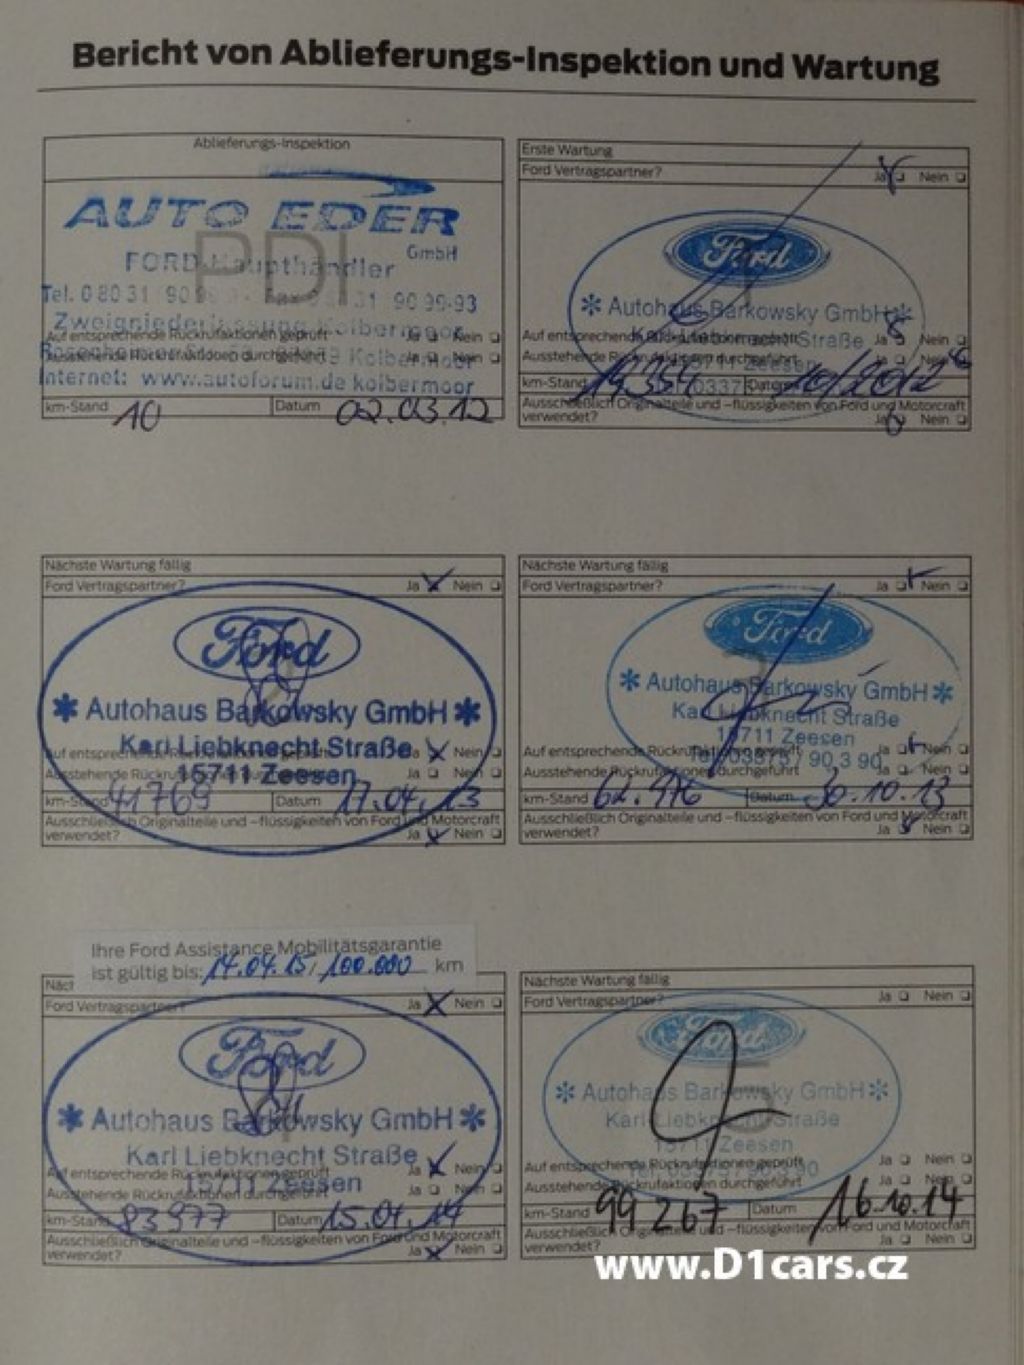 Bericht von Ablieferungs-Inspektion und Wartung
Ablieferungs-Inspektion
AUTO EDER
GmbH
FORD-Haupthändler
PDI
Tel. 08031 90 90 99-93
Zweigniederlassung Kolbermoor
Auf entsprechende Rückrufaktionen geprüft Ja Nein
Ausstehende Rückrufaktionen durchgeführt Ja Nein
Kolbermoor
Internet: www.autoforum.de kolbermoor
km-Stand 10 Datum 02.03.12
Erste Wartung
Ford Vertragspartner? Ja Nein
Ford
* Autohaus Barkowsky GmbH *
Karl Liebknecht Straße
Auf entsprechende Rückrufaktionen geprüft Ja Nein
Ausstehende Rückrufaktionen durchgeführt Ja Nein
15711 Zeesen
km-Stand Datum 10/2012
Ausschließlich Originalteile und -flüssigkeiten von Ford und Motorcraft
verwendet? Ja Nein
Nächste Wartung fällig
Ford Vertragspartner? Ja Nein
Ford
* Autohaus Barkowsky GmbH *
Karl Liebknecht Straße
Auf entsprechende Rückrufaktionen geprüft Ja Nein
15711 Zeesen
Ausstehende Rückrufaktionen durchgeführt Ja Nein
km-Stand 41769 Datum 17.04.13
Ausschließlich Originalteile und -flüssigkeiten von Ford und Motorcraft
verwendet? Ja Nein
Nächste Wartung fällig
Ford Vertragspartner? Ja Nein
Ford
* Autohaus Barkowsky GmbH *
Karl Liebknecht Straße
15711 Zeesen
Auf entsprechende Rückrufaktionen geprüft Ja Nein
Tel. 03375 / 90 3 90
Ausstehende Rückrufaktionen durchgeführt Ja Nein
km-Stand 62.476 Datum 30.10.13
Ausschließlich Originalteile und -flüssigkeiten von Ford und Motorcraft
verwendet? Ja Nein
Ihre Ford Assistance Mobilitätsgarantie
ist gültig bis: 14.04.15/ 100.000 km
Ford Vertragspartner? Ja Nein
Ford
* Autohaus Barkowsky GmbH *
Karl Liebknecht Straße
Auf entsprechende Rückrufaktionen geprüft Ja Nein
15711 Zeesen
Ausstehende Rückrufaktionen durchgeführt Ja Nein
km-Stand 83977 Datum 15.04.14
Ausschließlich Originalteile und -flüssigkeiten von Ford und Motorcraft
verwendet? Ja Nein
Nächste Wartung fällig
Ford Vertragspartner? Ja Nein
Ford
* Autohaus Barkowsky GmbH *
Karl Liebknecht Straße
15711 Zeesen
Auf entsprechende Rückrufaktionen geprüft Ja Nein
Ausstehende Rückrufaktionen durchgeführt Ja Nein
km-Stand 99 267 Datum 16.10.14
Ausschließlich Originalteile und -flüssigkeiten von Ford und Motorcraft
verwendet? Ja Nein
www.D1cars.cz